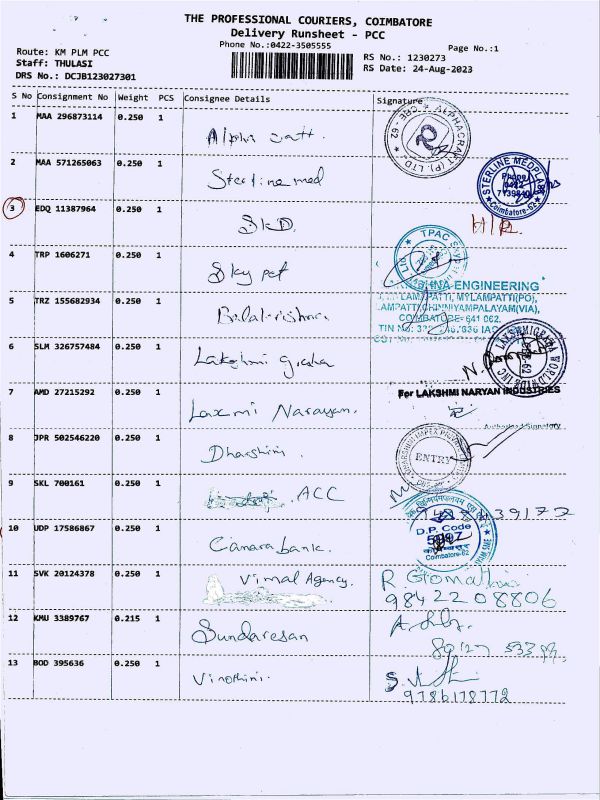 THE PROFESSIONAL COURIERS, COIMBATORE
Delivery Runsheet - PCC
Phone No.:0422-3505555
Page No.:1
Route: KM PLM PCC
Staff: THULASI
DRS No.: DCJB123027301
RS No.: 1230273
RS Date: 24-Aug-2023
S No Consignment No Weight PCS Consignee Details Signature
1 MAA 296873114 0.250 1 Alpha
ALPHACRAFT (P) LTD. CBE - 62
2 MAA 571265063 0.250 1 Sterline med
STERLINE MEDPLA Phone 0422 Coimbatore-62
3 EDQ 11387964 0.250 1 SKD
4 TRP 1606271 0.250 1 Sky pet
TPAC
5 TRZ 155682934 0.250 1 Balakrishna
HNA ENGINEERING
LAMPATTI, MYLAMPATTI(PO),
AMPATTI, CHINNIYAMPALAYAM(VIA),
COIMBATORE-641 062.
6 SLM 326757484 0.250 1 Lakshmi graha
7 AMD 27215292 1 0.250 1 Laxmi Narayan.
For LAKSHMI NARYAN INDUSTRIES
Authorised Signatory
8 JPR 502546220 0.250 1 Dharshini.
ENTRY
9 SKL 700161 0.250 1 ACC
10 UDP 17586867 0.250 1 Canara bank.
D.P. Code
Coimbatore-62
11 SVK 20124378 0.250 1 Vimal Agency.
R. Gomathi
9842208806
12 KMU 3389767 0.215 1 Sundaresan
13 BOD 395636 0.250 1 Vinothini.
9786178772